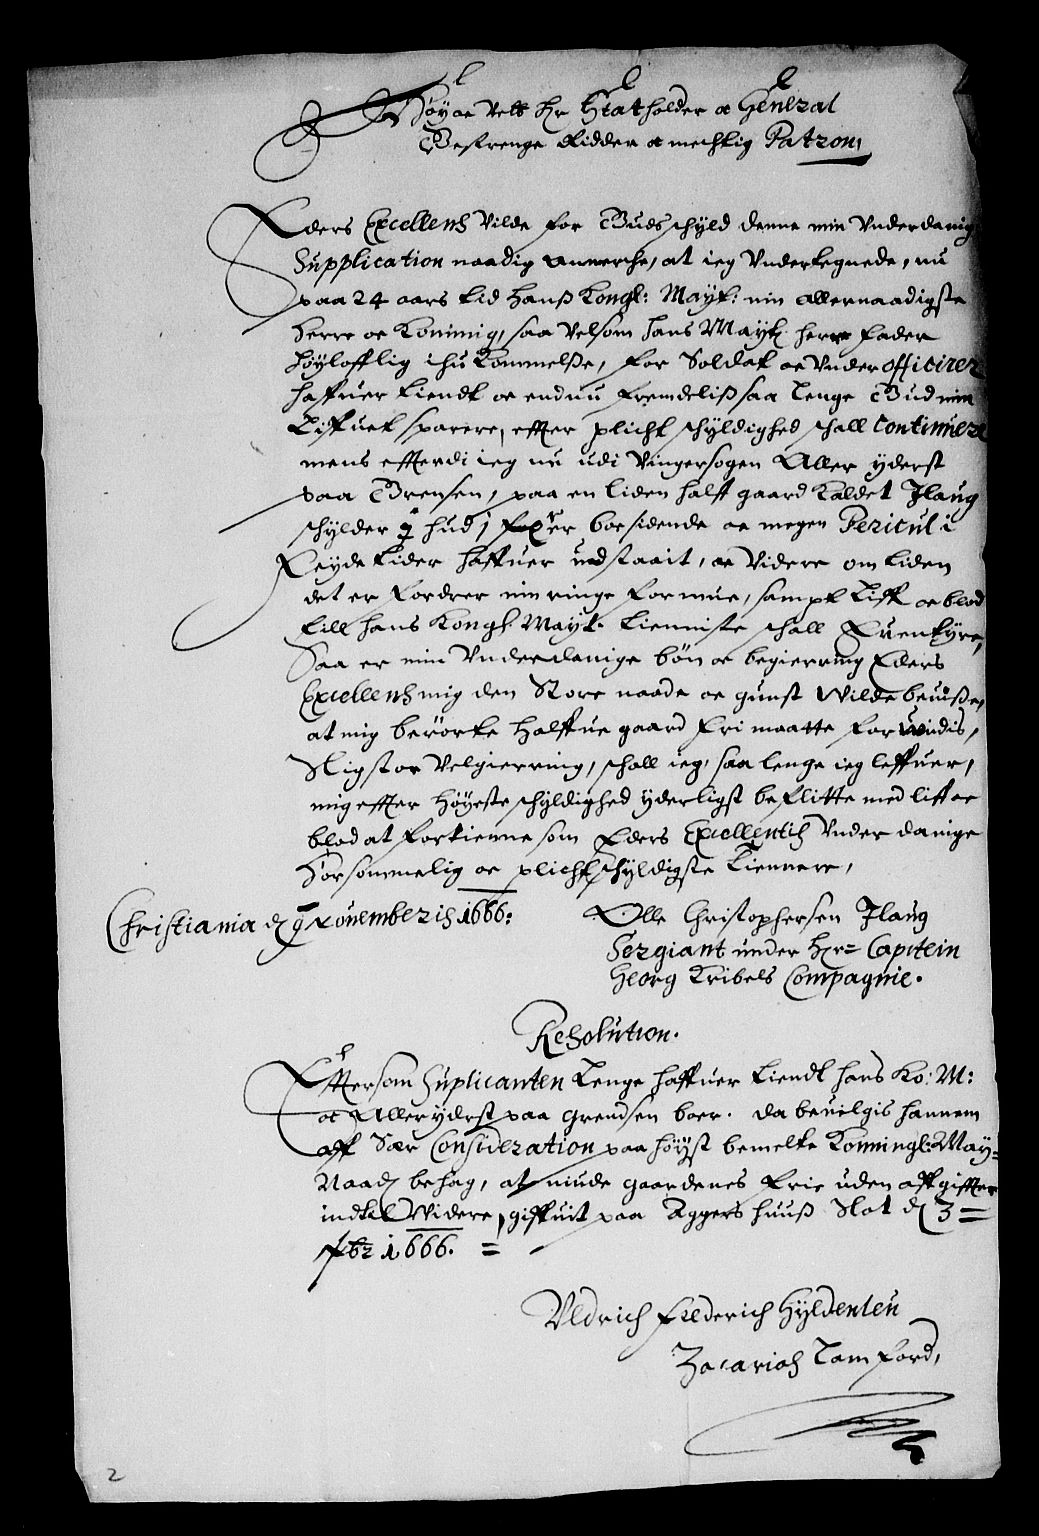 Høyæ Velb Hr Statholder oc General
Gestrenge Ridder oc mechtig Patron,
Eders Excellentz Vilde for Guds schyld denne min Vnderdanig
Supplication naadig anmerche, at ieg Vndertegnede, nu
paa 24 aars tid hanß Kongl: Mayt: min allernaadigste
herre oc Konning, saa velsom hans Mayt. herre fader
høylofflig ihu Kommelße, for Soldat oc Vnder officirer
haffuer tiendt oc endnu fremdeliß saa lenge Gud min
Liffuet sparere, effter plicht schyldighed schall Continuere
mens efferdi ieg nu udi Vingersogen Aller yderst
paa Grensen, paa en liden half gaard Kaldet Jlaug
schylder hud, er boesidende oc megen Pericul i
Feyde tider haffuer udstaait, oc Videre om tiden
det er fordrer min ringe formue, sampt Liff oc blod
till hans Kongl Mayt. tienniste schall Euentyre,
Saa er min Vnderdanige bøn oc begierring Eders
Excellentz mig den Store naade oc gunst Wilde beuiße,
at mig berørte halffue gaard fri maatte forundis,
Sligstor Velgierring, schall ieg, saa lenge ieg leffuer,
mig effter høyeste schyldighed yderligst beflitte med lif oc
blod at fortienne som Eders Excellentis Vnder danige
hørsommelig oc plicht schyldigste tiennere,
Christiania d 9 Novemberis 1666:
Olle Christophersen Jlaug
Sergiant under Hr= Capitein
Georg Kribels Compagnie.
Resolution.
Efftersom Suplicanten lenge haffuer tiendt hans Ko: M:
oc Aller yderst paa grendsen boer. da beuilgis hannem
aff Sær Consideration paa høyst bemelte Konningl: May=
Naad behag, at niude gaardenes frie uden affgiffter
indtil Widere, giffuit paa Aggers huuß Slot d 3=
fbr 1666. =
Vldrich Friderich Gyldenleu
Zacarias Lamford,
2